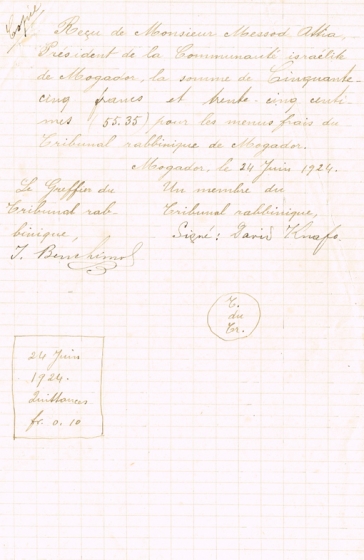 Copie
Reçu de Monsieur Messod Attia,
Président de la Communauté israélite
de Mogador, la somme de Cinquante-
cinq francs et trente-cinq centi-
mes (55.35) pour les menus frais du
Tribunal rabbinique de Mogador.
Mogador, le 24 Juin 1924.
Le Greffier du
Tribunal rab-
binique,
J. Benchimol
Un membre du
Tribunal rabbinique,
Signé: David Knafo.
T.
du
Tr.
24 Juin
1924.
Quittances
fr. 0.10